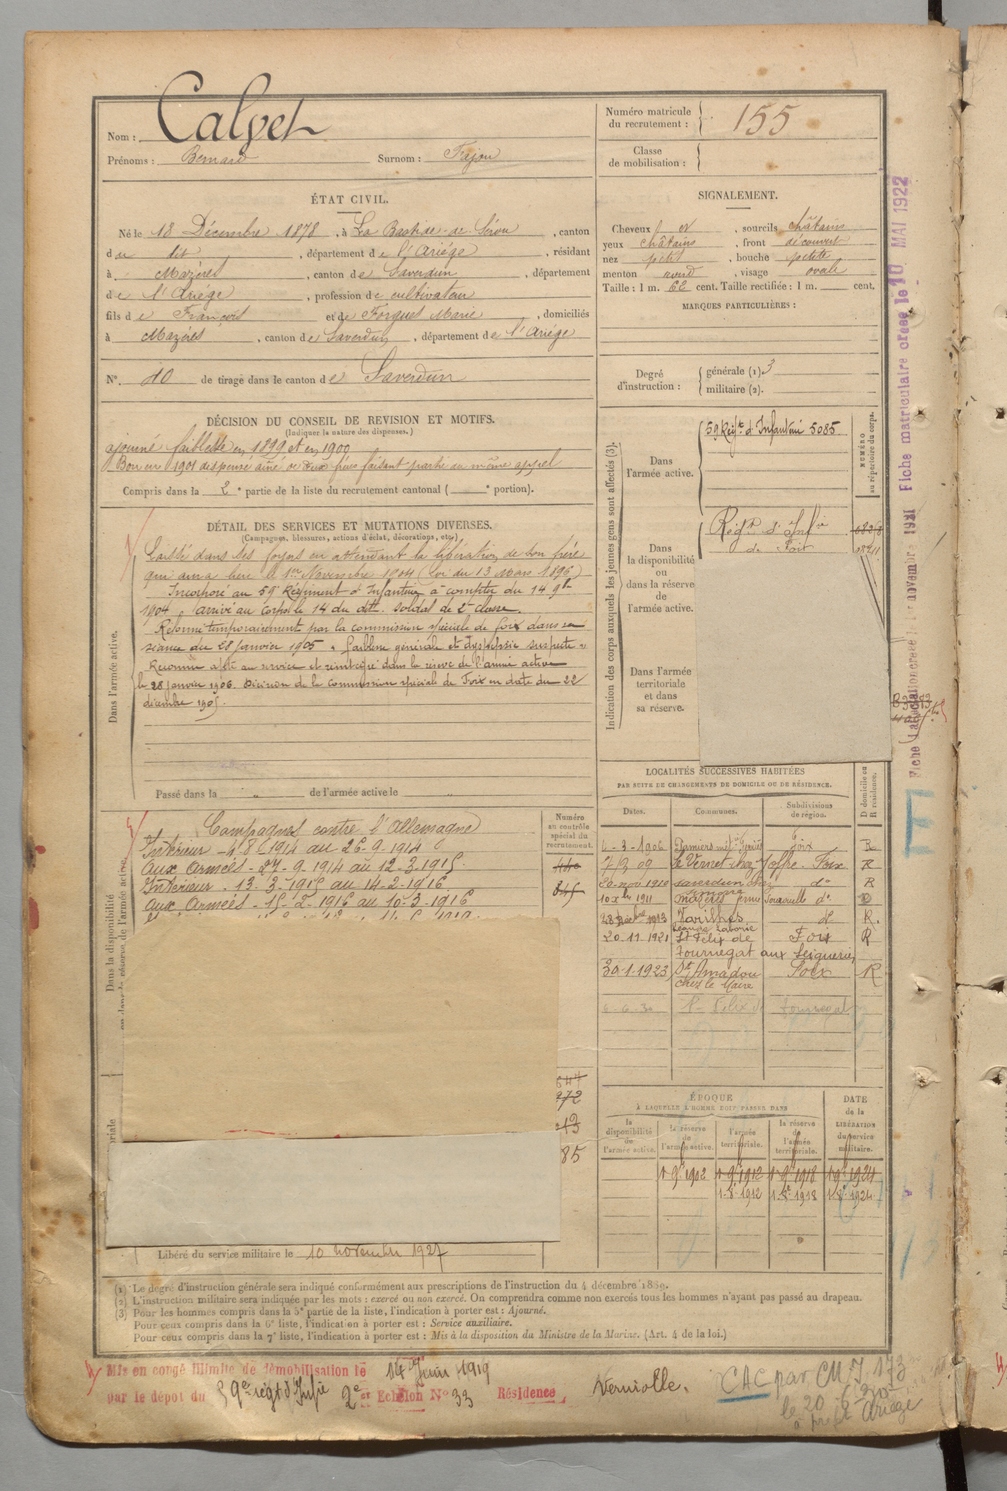 Nom : Calvet
Prénoms : Bernard Surnom : Fajou
Numéro matricule du recrutement : 155
Classe de mobilisation :
ÉTAT CIVIL.
Né le 18 Décembre 1878, à La Bastide-de-Sérou, canton
du dit, département de l'Ariège, résidant
à Mazères, canton de Saverdun, département
de l'Ariège, profession de cultivateur
fils de François et de Forgues Marie, domiciliés
à Mazères, canton de Saverdun, département de l'Ariège
N° 10 de tirage dans le canton de Saverdun
SIGNALEMENT.
Cheveux et, sourcils châtains
yeux châtains, front découvert
nez petit, bouche petite
menton rond, visage ovale
Taille : 1 m. 62 cent. Taille rectifiée : 1 m. cent.
MARQUES PARTICULIÈRES :
Degré d'instruction : générale (1). 3
militaire (2).
DÉCISION DU CONSEIL DE REVISION ET MOTIFS.
(Indiquer la nature des dispenses.)
ajourné faiblesse en 1899 et en 1900
Bon en 1901 dispensé aîné de deux frères faisant partie du même appel
Compris dans la 2e partie de la liste du recrutement cantonal ( e portion).
DÉTAIL DES SERVICES ET MUTATIONS DIVERSES.
(Campagnes, blessures, actions d'éclat, décorations, etc.)
Dans l'armée active.
Laissé dans ses foyers en attendant la libération de son frère
qui aura lieu le 1er Novembre 1904 (Loi du 13 Mars 1896)
Incorporé au 59e Régiment d'Infanterie à compter du 14 9bre
1904, arrivé au corps le 14 du dit. Soldat de 2e classe.
Réformé temporairement par la commission spéciale de Foix dans sa
séance du 28 janvier 1905 « faiblesse générale et dyspepsie suspecte »
Reconnu apte au service et réintégré dans la réserve de l'armée active
le 28 janvier 1906. Décision de la Commission spéciale de Foix en date du 22
décembre 1905.
Passé dans la de l'armée active le
Indication des corps auxquels les jeunes gens sont affectés (3).
Dans l'armée active.
59 Régt d'Infanterie 5085
NUMÉRO au répertoire du corps.
Dans la disponibilité ou dans la réserve de l'armée active.
Régt d'Infie
de Foix
Dans l'armée territoriale et dans sa réserve.
Dans la disponibilité ou dans la réserve de l'armée active.
Campagnes contre l'Allemagne
Intérieur - 4 8 1914 au 26-9-1914
aux Armées - 27-9-1914 au 12-3-1915
Intérieur - 13-3-1915 au 14-2-1916
aux Armées - 15-2-1916 au 10-3-1916
Numéro au contrôle spécial du recrutement.
845
972
213
85
LOCALITÉS SUCCESSIVES HABITÉES
PAR SUITE DE CHANGEMENTS DE DOMICILE OU DE RÉSIDENCE.
Dates. Communes. Subdivisions de région. D domicile ou R résidence.
6-3-1906 Foix R
7-9-09 le Vernet chez Joffre Foix R
20 nov 1910 Saverdun do R
10 Xbre 1911 mazères do D
1913 Varilhes do R.
20-11-1921 St Felix de Foix R
Tournegat aux Seigneurie
30-1-1923 St Amadou Foix R
chez le Maire
6-6-30 St Felix de Tournegat
ÉPOQUE
À LAQUELLE L'HOMME DOIT PASSER DANS
la disponibilité de l'armée active.
la réserve de l'armée active.
l'armée territoriale.
la réserve de l'armée territoriale.
DATE de la LIBÉRATION du service militaire.
1 9e 1902 1 9e 1912 1 9e 1918 1 9e 1924
1-8-1912 1-8e 1918 1-8e 1924
Libéré du service militaire le 10 novembre 1927
(1) Le degré d'instruction générale sera indiqué conformément aux prescriptions de l'instruction du 4 décembre 1889.
(2) L'instruction militaire sera indiquée par les mots : exercé ou non exercé. On comprendra comme non exercés tous les hommes n'ayant pas passé au drapeau.
(3) Pour les hommes compris dans la 5e partie de la liste, l'indication à porter est : Ajourné.
Pour ceux compris dans la 6e liste, l'indication à porter est : Service auxiliaire.
Pour ceux compris dans la 7e liste, l'indication à porter est : Mis à la disposition du Ministre de la Marine. (Art. 4 de la loi.)
Mis en congé illimité de démobilisation le 14 Juin 1919
par le dépôt du 59e régt d'Infie 2e Echelon N° 33 Résidence Verniolle.
CAC par CM J 173
le 20
Ariège
Fiche matriculaire créée le 10 MAI 1922